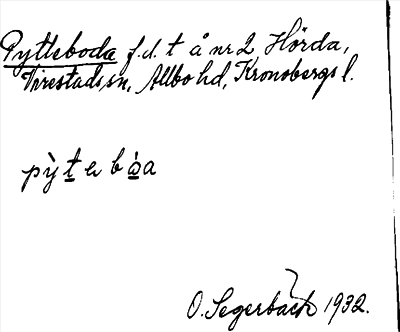 Pytteboda f.d. t å nr 2 Hörda,
Virestads sn, Allbo hd, Kronobergs l.
pỳt̲ e b ȯ̲ a
O. Segerbäck 1932.